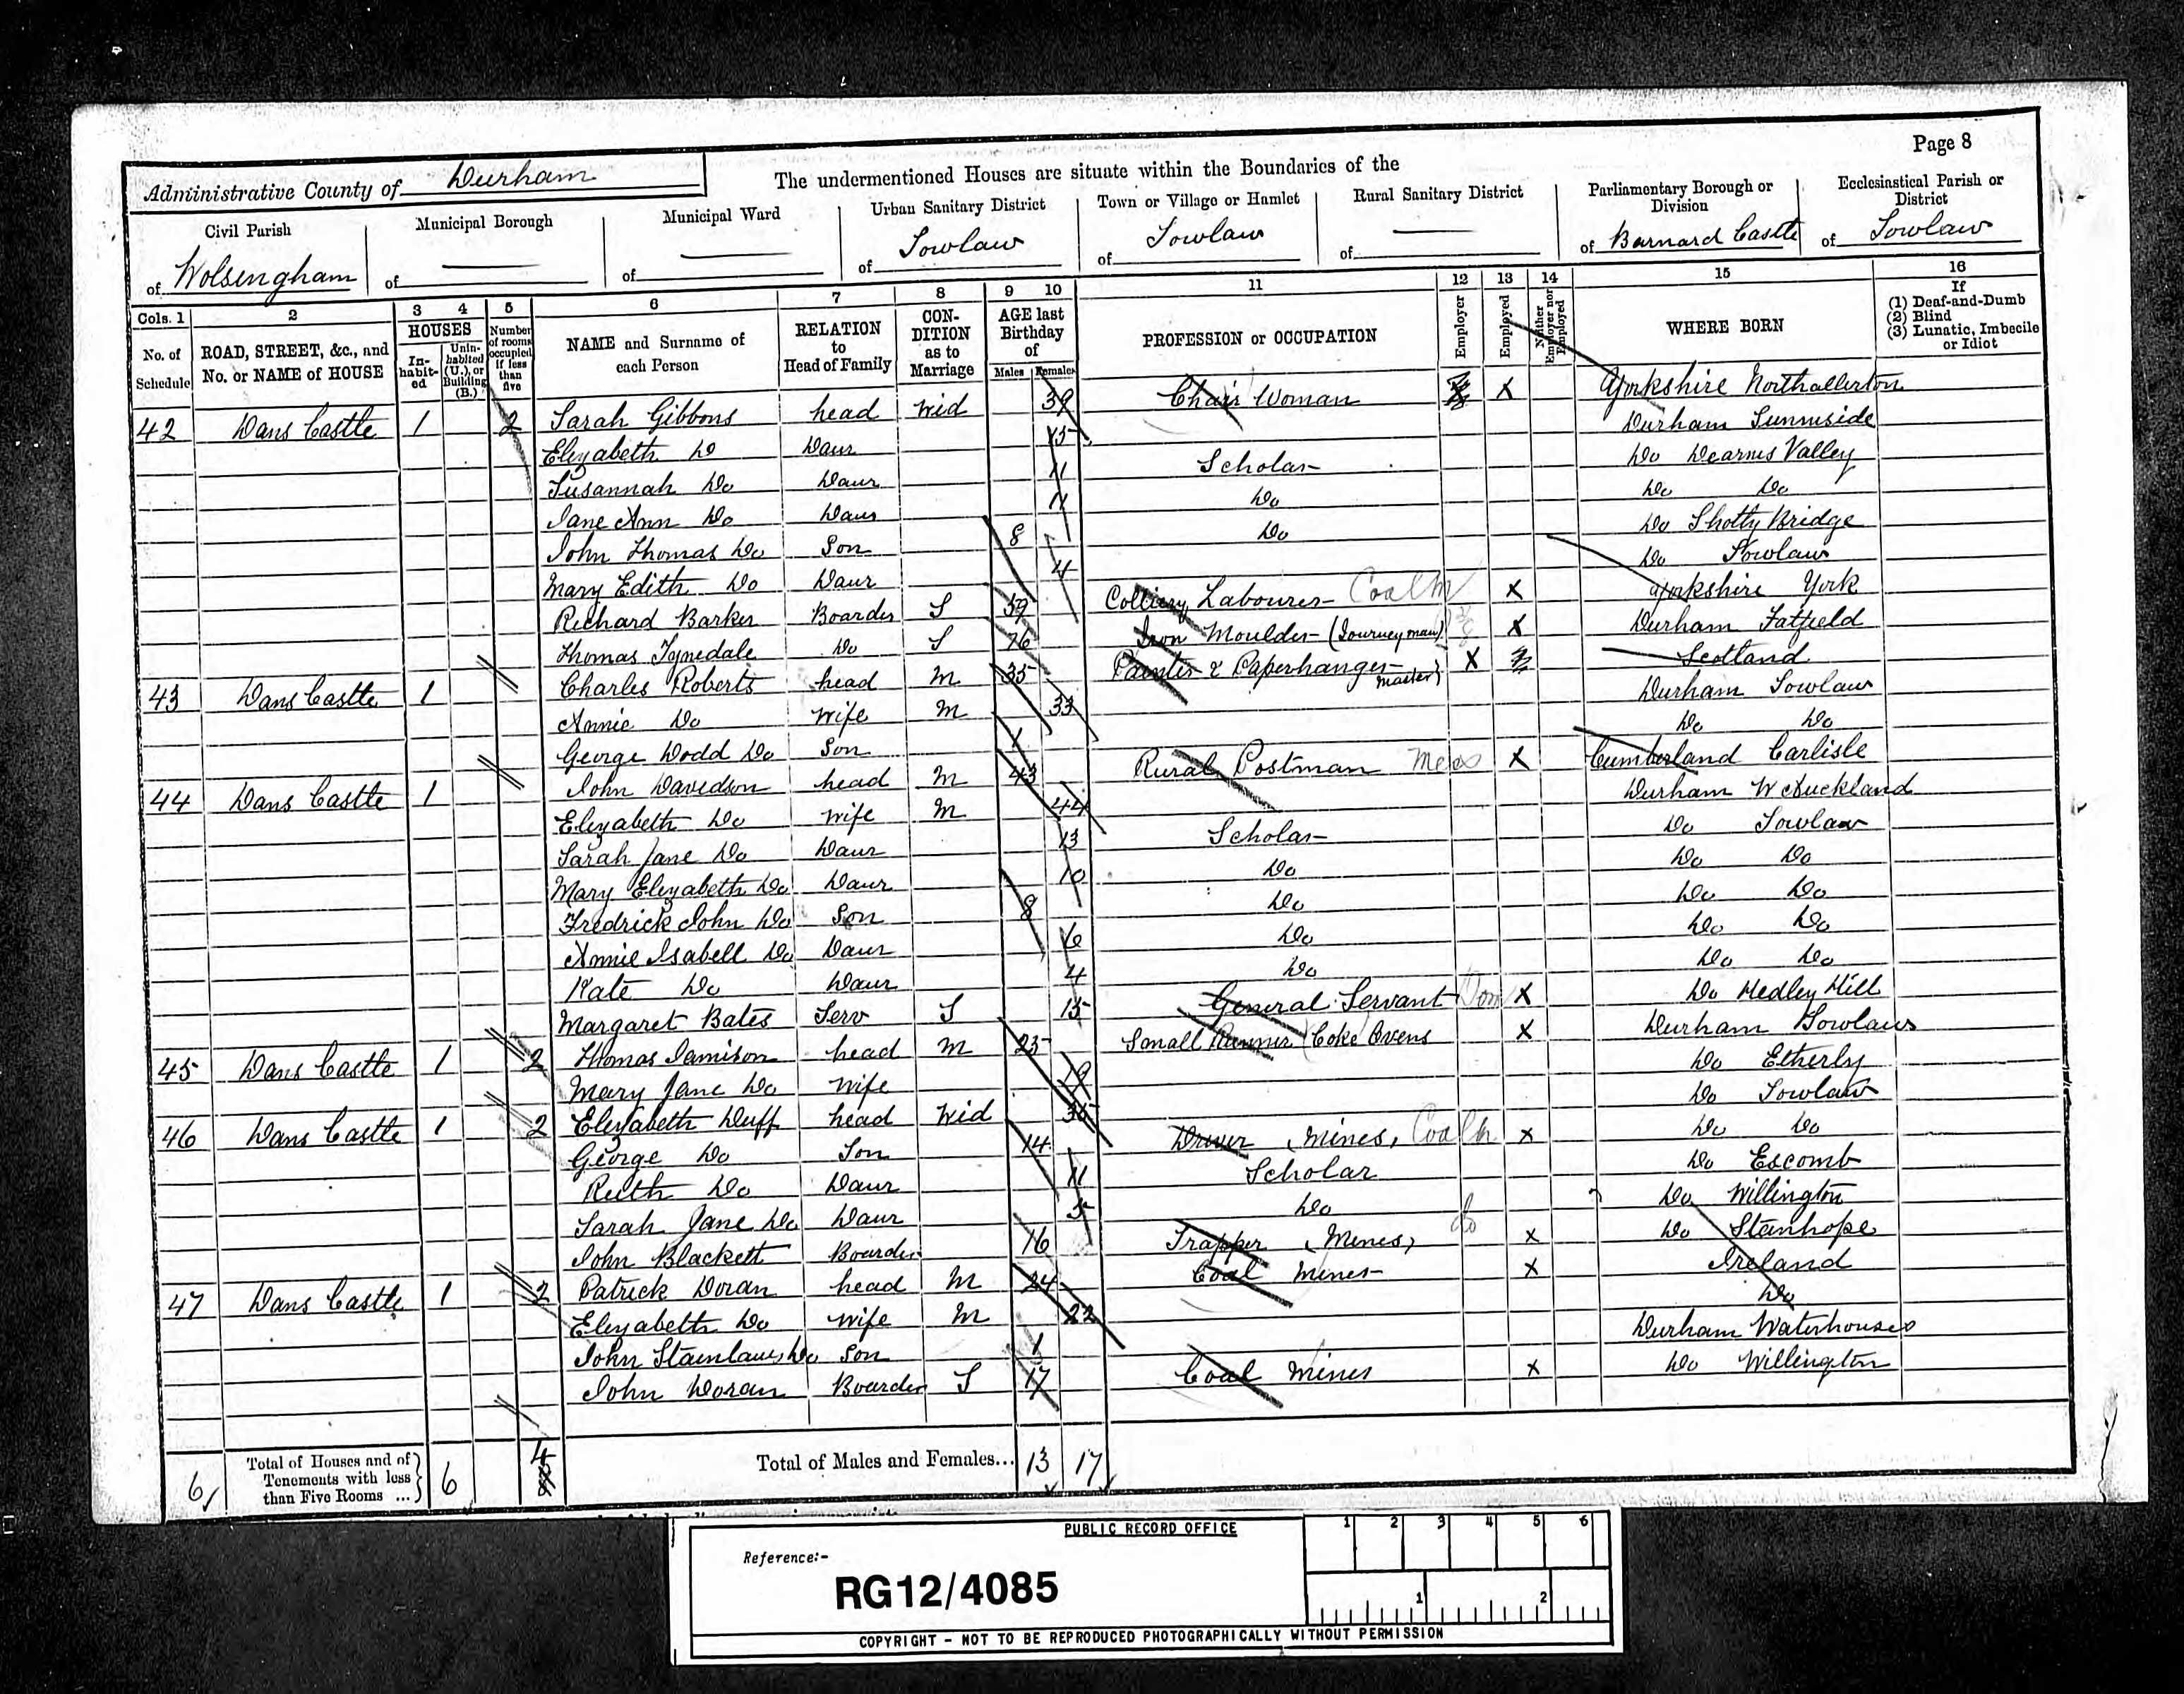 Page 8
Administrative County of Durham
The undermentioned Houses are situate within the Boundaries of the
Civil Parish of Wolsingham
Municipal Borough of —
Municipal Ward of —
Urban Sanitary District of Towlaw
Town or Village or Hamlet of Towlaw
Rural Sanitary District of —
Parliamentary Borough or Division of Barnard Castle
Ecclesiastical Parish or District of Towlaw
Cols. 1 2 3 4 5 6 7 8 9 10 11 12 13 14 15 16
No. of Schedule
ROAD, STREET, &c., and No. or NAME of HOUSE
HOUSES
In-habit-ed
Unin-habited (U.), or Building (B.)
Number of rooms occupied if less than five
NAME and Surname of each Person
RELATION to Head of Family
CON-DITION as to Marriage
AGE last Birthday of
Males Females
PROFESSION or OCCUPATION
Employer
Employed
Neither Employer nor Employed
WHERE BORN
If
(1) Deaf-and-Dumb
(2) Blind
(3) Lunatic, Imbecile or Idiot
42 Dans Castle 1 2 Sarah Gibbons head Wid 39 Chair Woman X Yorkshire Northallerton
Elizabeth Do Daur 15 Durham Sunniside
Susannah Do Daur 11 Scholar Do Dearnes Valley
Jane Ann Do Daur 11 Do Do Do
John Thomas Do Son 8 Do Do Shotly Bridge
Mary Edith Do Daur 4 Do Towlaw
Richard Barker Boarder S 59 Colliery Labourer Coal M X Yorkshire York
Thomas Tynedale Do S 76 Iron Moulder (Journeyman) X Durham Fatfield
43 Dans Castle 1 Charles Roberts head M 35 Painter & Paperhanger master X Scotland
Annie Do Wife M 33 Durham Towlaw
George Dodd Do Son 1 Do Do
44 Dans Castle 1 John Davidson head M 43 Rural Postman Mess X Cumberland Carlisle
Elizabeth Do Wife M 44 Durham W Auckland
Sarah Jane Do Daur 13 Scholar Do Towlaw
Mary Elizabeth Do Daur 10 Do Do Do
Fredrick John Do Son 8 Do Do Do
Annie Isabell Do Daur 6 Do Do Do
Kate Do Daur 4 Do Do Do
Margaret Bates Serv S 15 General Servant Dom X Do Hedley Hill
45 Dans Castle 1 2 Thomas Jamison head M 23 Small Runner (Coke Ovens X Durham Towlaw
Mary Jane Do Wife 19 Do Etherly
46 Dans Castle 1 2 Elizabeth Duff head Wid 36 Do Towlaw
George Do Son 14 Driver (Mines) Coal M X Do Do
Ruth Do Daur 11 Scholar Do Escomb
Sarah Jane Do Daur 5 Do Do Willington
John Blackett Boarder 16 Trapper (Mines) do X Do Stanhope
47 Dans Castle 1 2 Patrick Doran head M 24 Coal Miner X Ireland
Elizabeth Do Wife M 22 Do
John Stainlaus Do Son 1 Durham Waterhouses
John Doran Boarder S 17 Coal Miner X Do Willington
6 Total of Houses and of Tenements with less than Five Rooms ... 6 4 Total of Males and Females... 13 17
PUBLIC RECORD OFFICE
Reference:-
RG12/4085
1 2 3 4 5 6
1 2
COPYRIGHT - NOT TO BE REPRODUCED PHOTOGRAPHICALLY WITHOUT PERMISSION